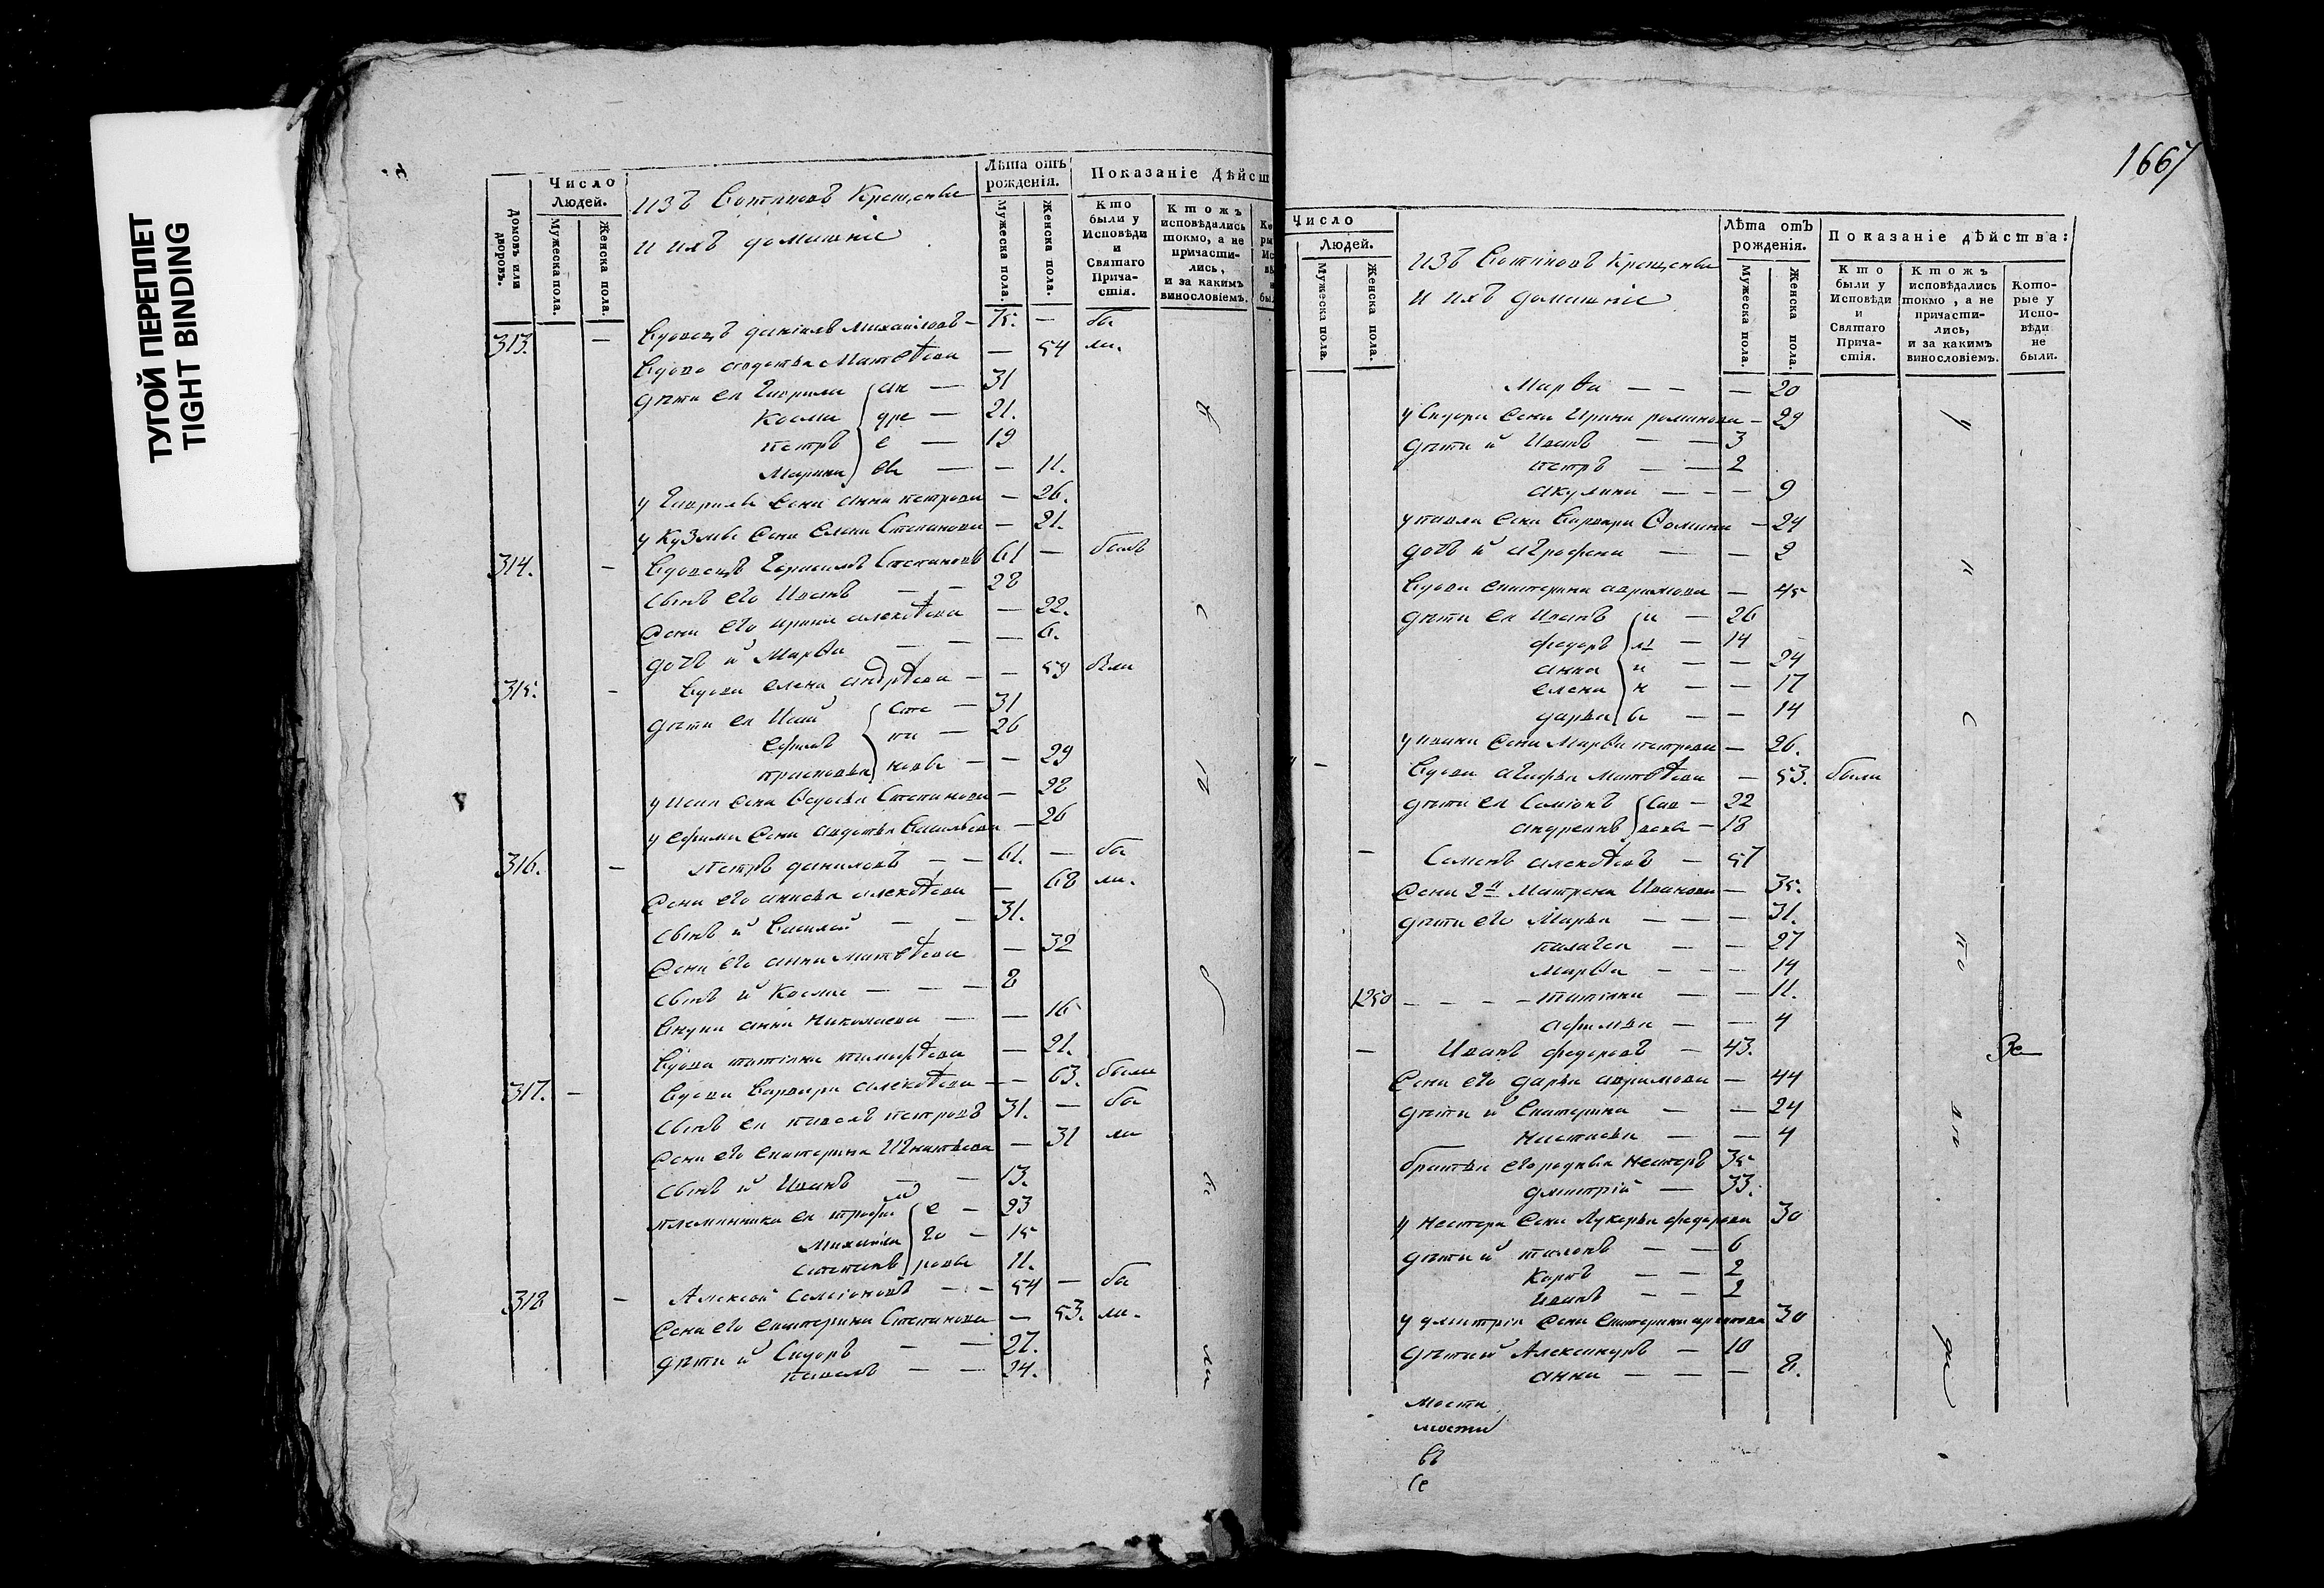 ТУГОЙ ПЕРЕПЛЕТ
TIGHT BINDING
Домовъ или дворовъ.
Число Людей.
Мужеска пола.
Женска пола.
изъ Вотяковъ Крещены
и ихъ домашніе
Лѣта отъ рожденія.
Мужеска пола.
Женска пола.
Показаніе Дѣйст
Кто были у Исповѣди и Святаго Прича-стія.
Ктожъ исповѣдались токмо, а не причасти-лись, и за какимъ винословіемъ.
313. — Вдовецъ даніилъ Михаиловъ — 75. — бы
Вдова авдотья Матвѣева — 54 ли.
дѣти ея Гаврила ан — 31
Косма дре — 21.
петръ е — 19
Марина вы — — 11.
у Гаврилы жена анна петрова — 26.
у Кузмы жена Елена Степанова — 21.
314. — Вдовецъ Герасимъ Степановъ 61 — былъ
сынъ его Иванъ — — 28
жена его ирина алексѣева — 22.
дочь их Марѳа — — — 6.
315. — Вдова елена андрѣева — — 59 были
дѣти ея Исай Сте — 31
ефимъ па — 26
прасковья новы — — 29
у исая жена Ѳедосья Степанова — 28
у ефима жена авдотья Васильева — 26
316. — Петръ даниловъ — — 61. — бы
жена его анисья алексѣева — 68 ли.
сынъ их Василей — — 31.
жена его анна Матвѣева — 32
сынъ их Косма — — — 8
внука анна Николаева — — 16
вдова татіяна тимофѣева — 21.
317. — Вдова Варвара алексѣева — — 63. была
сынъ ея павелъ петровъ 31. — бы
жена его екатерина Игнатьева — 31 ли
сынъ их Иванъ — — 13.
племянники ея трофим е — 23
михаила го — 15
степанъ ровы 11.
318 — Алексей Семіоновъ — — 54 — бы
жена его екатерина Степанова — 53. ли.
дѣти их Сидоръ — — 27.
павелъ — — 24.
1667
Число Людей.
Мужеска пола.
Женска пола.
изъ Вотяковъ Крещены
и ихъ домашніе
Лѣта отъ рожденія.
Мужеска пола.
Женска пола.
Показаніе дѣйства:
Кто были у Исповѣди и Святаго Прича-стія.
Ктожъ исповѣдались токмо, а не причасти-лись, и за какимъ винословіемъ.
Кото-рые у Испо-вѣди не были.
Марѳа — — — 20
у Сидора жена Ирина романова — 29
дѣти их Иванъ — — 3
петръ — — 2
акулина — — — 9
у павла жена Варвара Ѳомина — 24
дочь их агрофена — — 2
Вдова екатерина аврамова — 45
дѣти ея Иванъ и — 26
федоръ — 14
анна — — 24
елена н — — 17
дарья вы — — 14
у ивана жена Марѳа петрова — 26.
— Вдова агафья Матвѣева — 53. были
дѣти ея Семіонъ Сав — 22
андреянъ вовы — 18
— Семенъ алексѣевъ — 57
жена 2я Матрена Иванова — 35.
дѣти его Марья — — — 31.
палагея — — 27
марѳа — — — 14
1250 — — — — татіяна — — 11.
афимья — — 4
— Иванъ федоровъ — 43.
жена его дарья аврамова — 44
дѣти их Екатерина — — 24
Настасья — — 4
братья его родныя Нестеръ 35
дмитрій — 33.
у Нестера жена Лукерья федорова 30
дѣти их — — 6
Карпъ — — 2
Иванъ — — 2
у дмитрія жена Екатерина 30
дѣти их Александръ — 10
анна — — — 8.